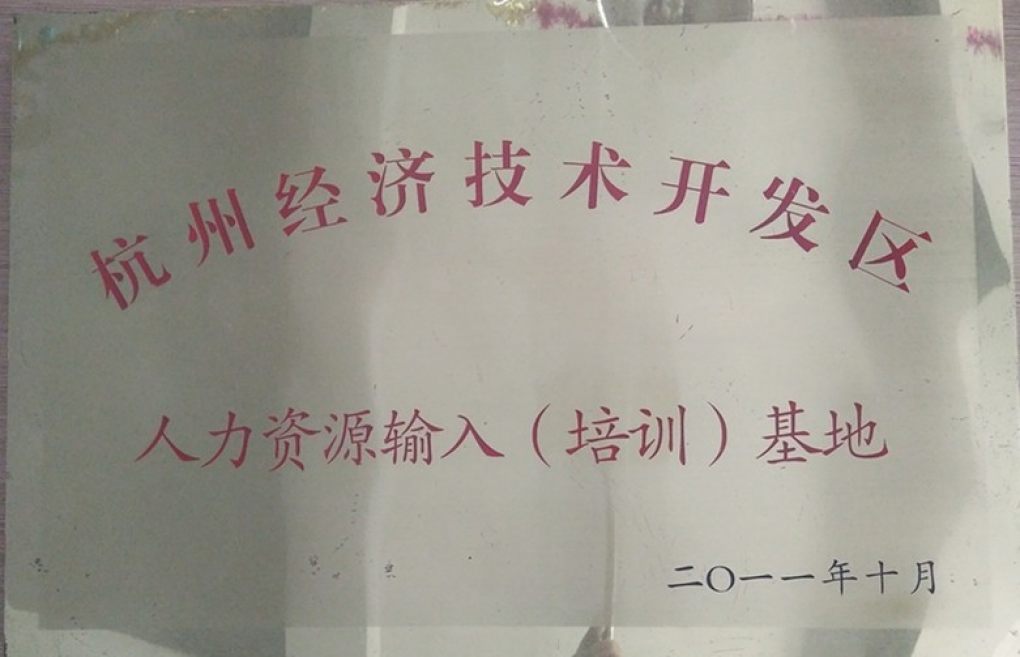 杭州经济技术开发区
人力资源输入（培训）基地
二〇一一年十月